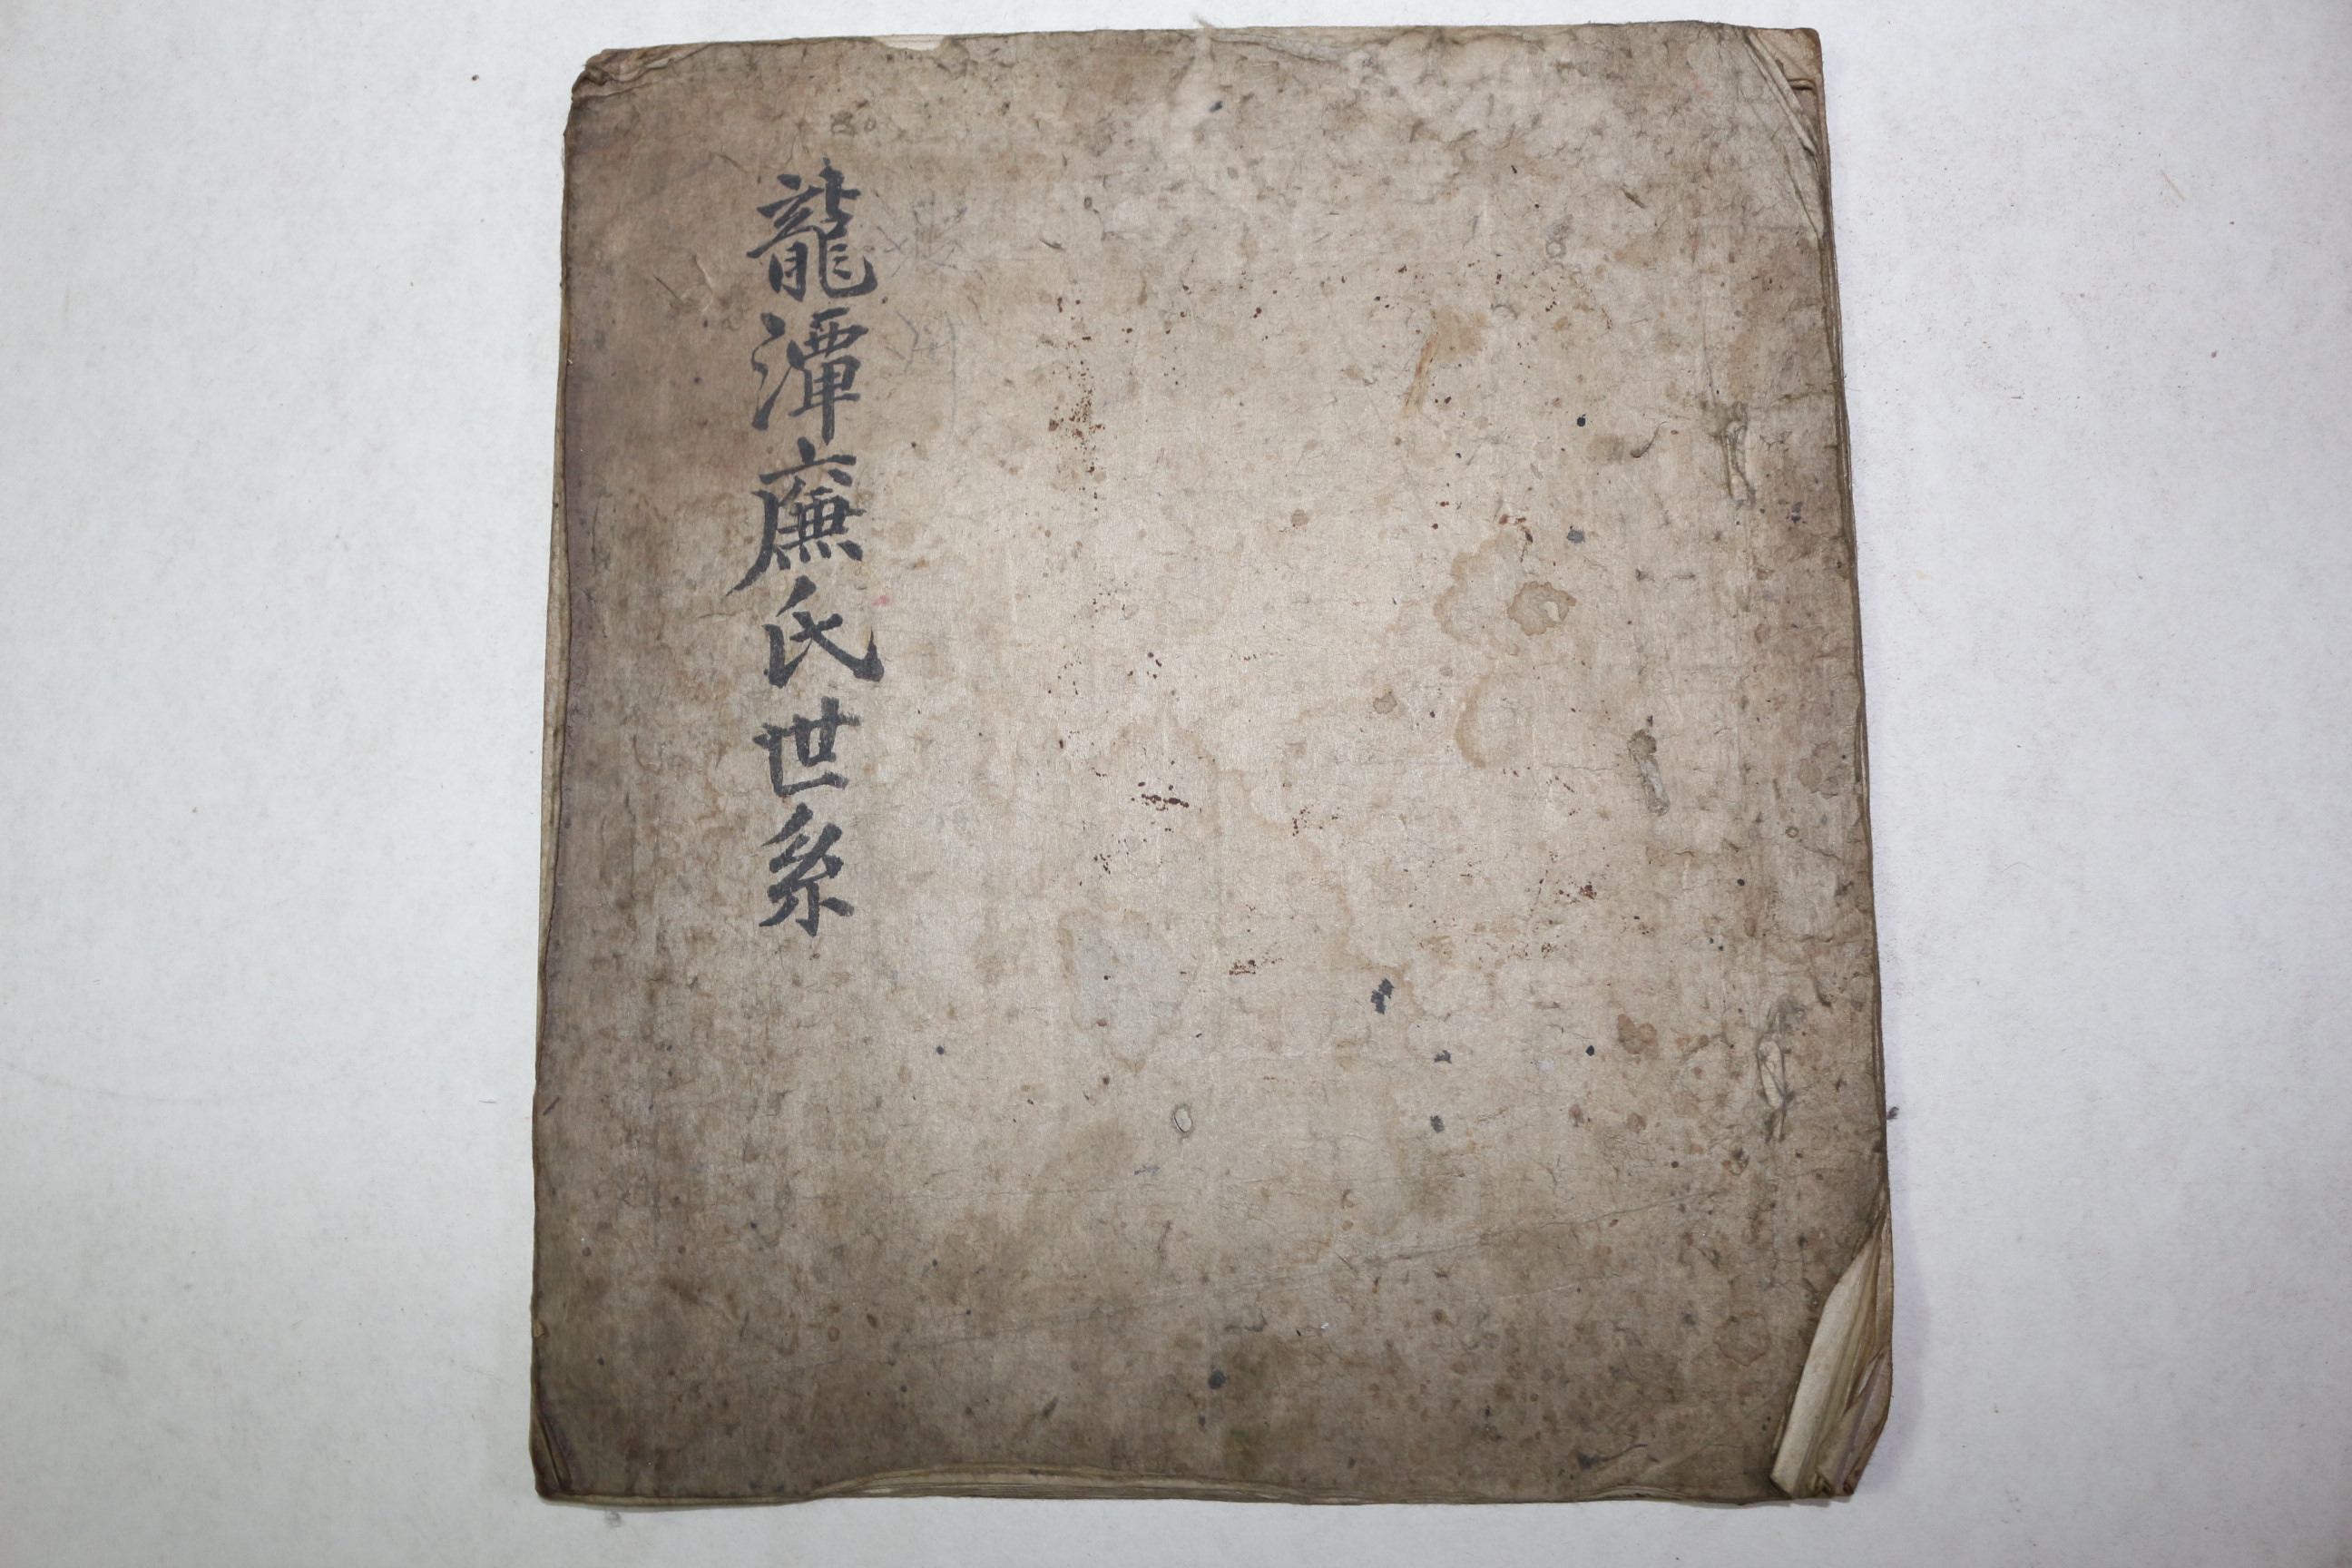 龍潭廉氏世系